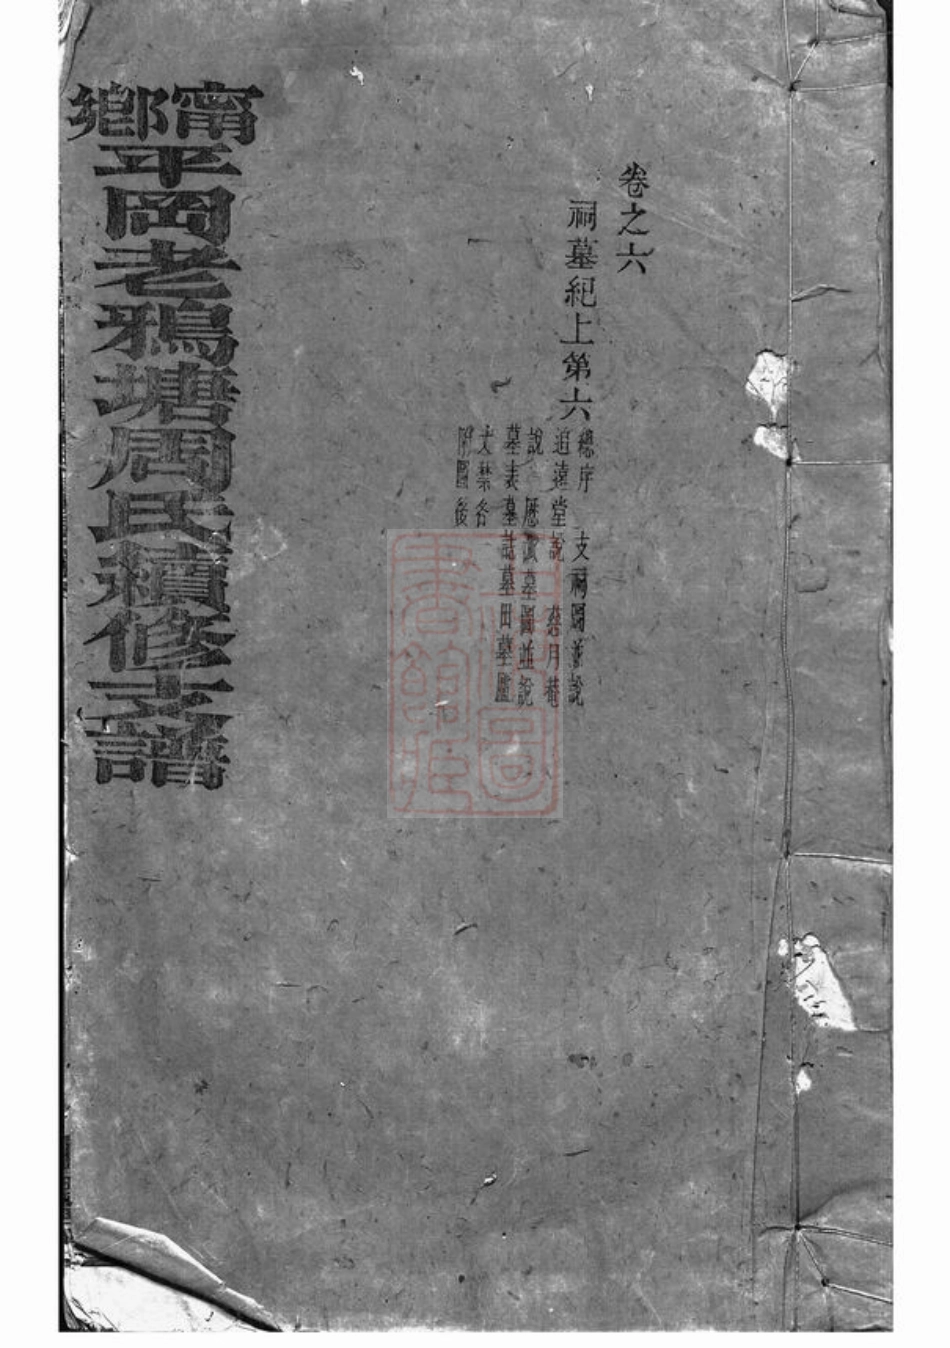 卷之六
祠墓紀上第六
總序 支祠圖並說
追遠堂說 慈月菴
說 歷代墓圖並說
墓表墓誌墓田墓廬
文禁各
附圖後
甯鄉平岡老鴉塘周氏續修支譜